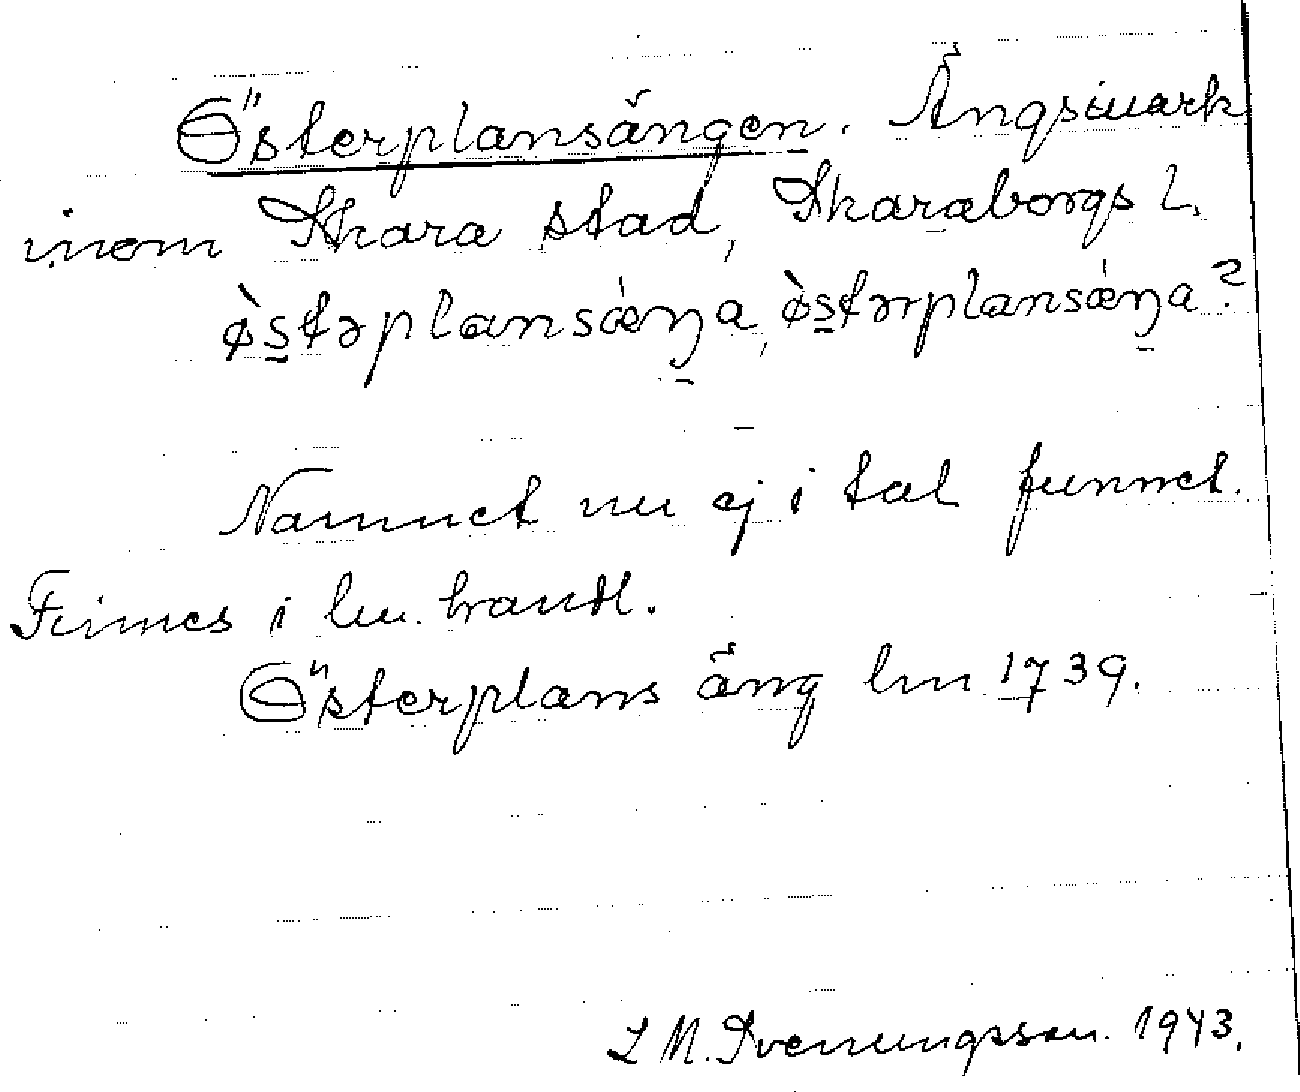 Österplansängen. Ängsmark
inom Skara stad, Skaraborgs l.
ø̀s̠təplansǽŋ̠a, ø̀s̠tərplansǽŋ̠a?
Namnet nu ej i tal funnet.
Finnes i lm. handl.
Österplans äng lm 1739.
L M. Svenungsson. 1943.